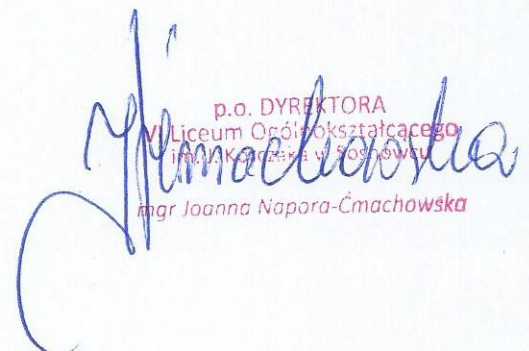 p.o. DYREKTORA
VI Liceum Ogólnokształcącego
im. J. Korczaka w Sosnowcu
mgr Joanna Napora-Ćmachowska